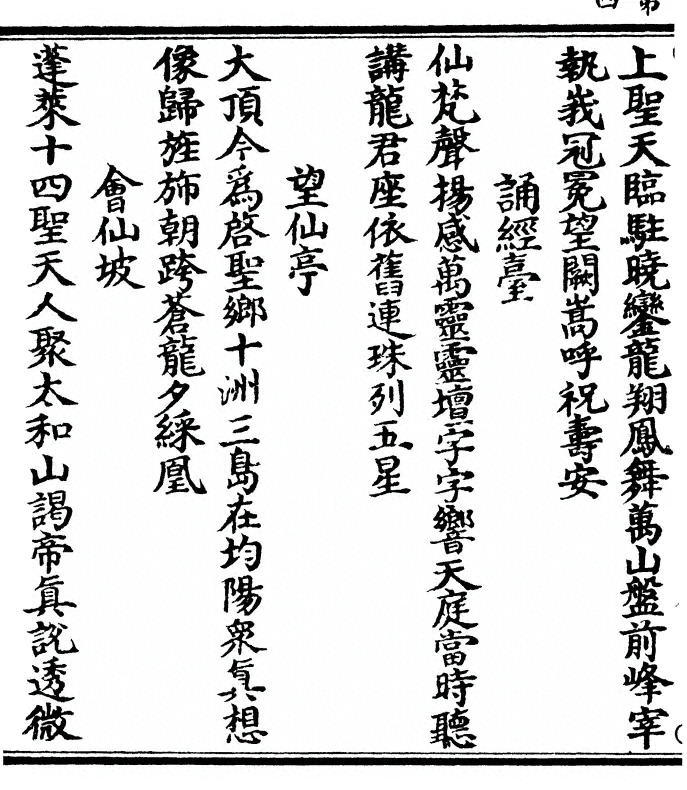 上聖天臨駐曉鑾龍翔鳳舞萬山盤前峰宰
執峩冠冕望闕嵩呼祝壽安
誦經臺
仙梵聲揚感萬靈靈壇字字響天庭當時聽
講龍君座依舊連珠列五星
望仙亭
大頂今爲啓聖鄉十洲三島在均陽衆眞想
像歸旌斾朝跨蒼龍夕綵凰
會仙坡
蓬萊十四聖天人聚太和山謁帝眞說透微